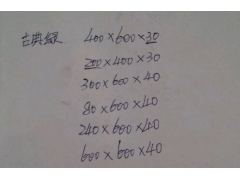 古典綠 400×600×30
200×400×30
300×600×40
80×600×40
240×600×40
600×600×40